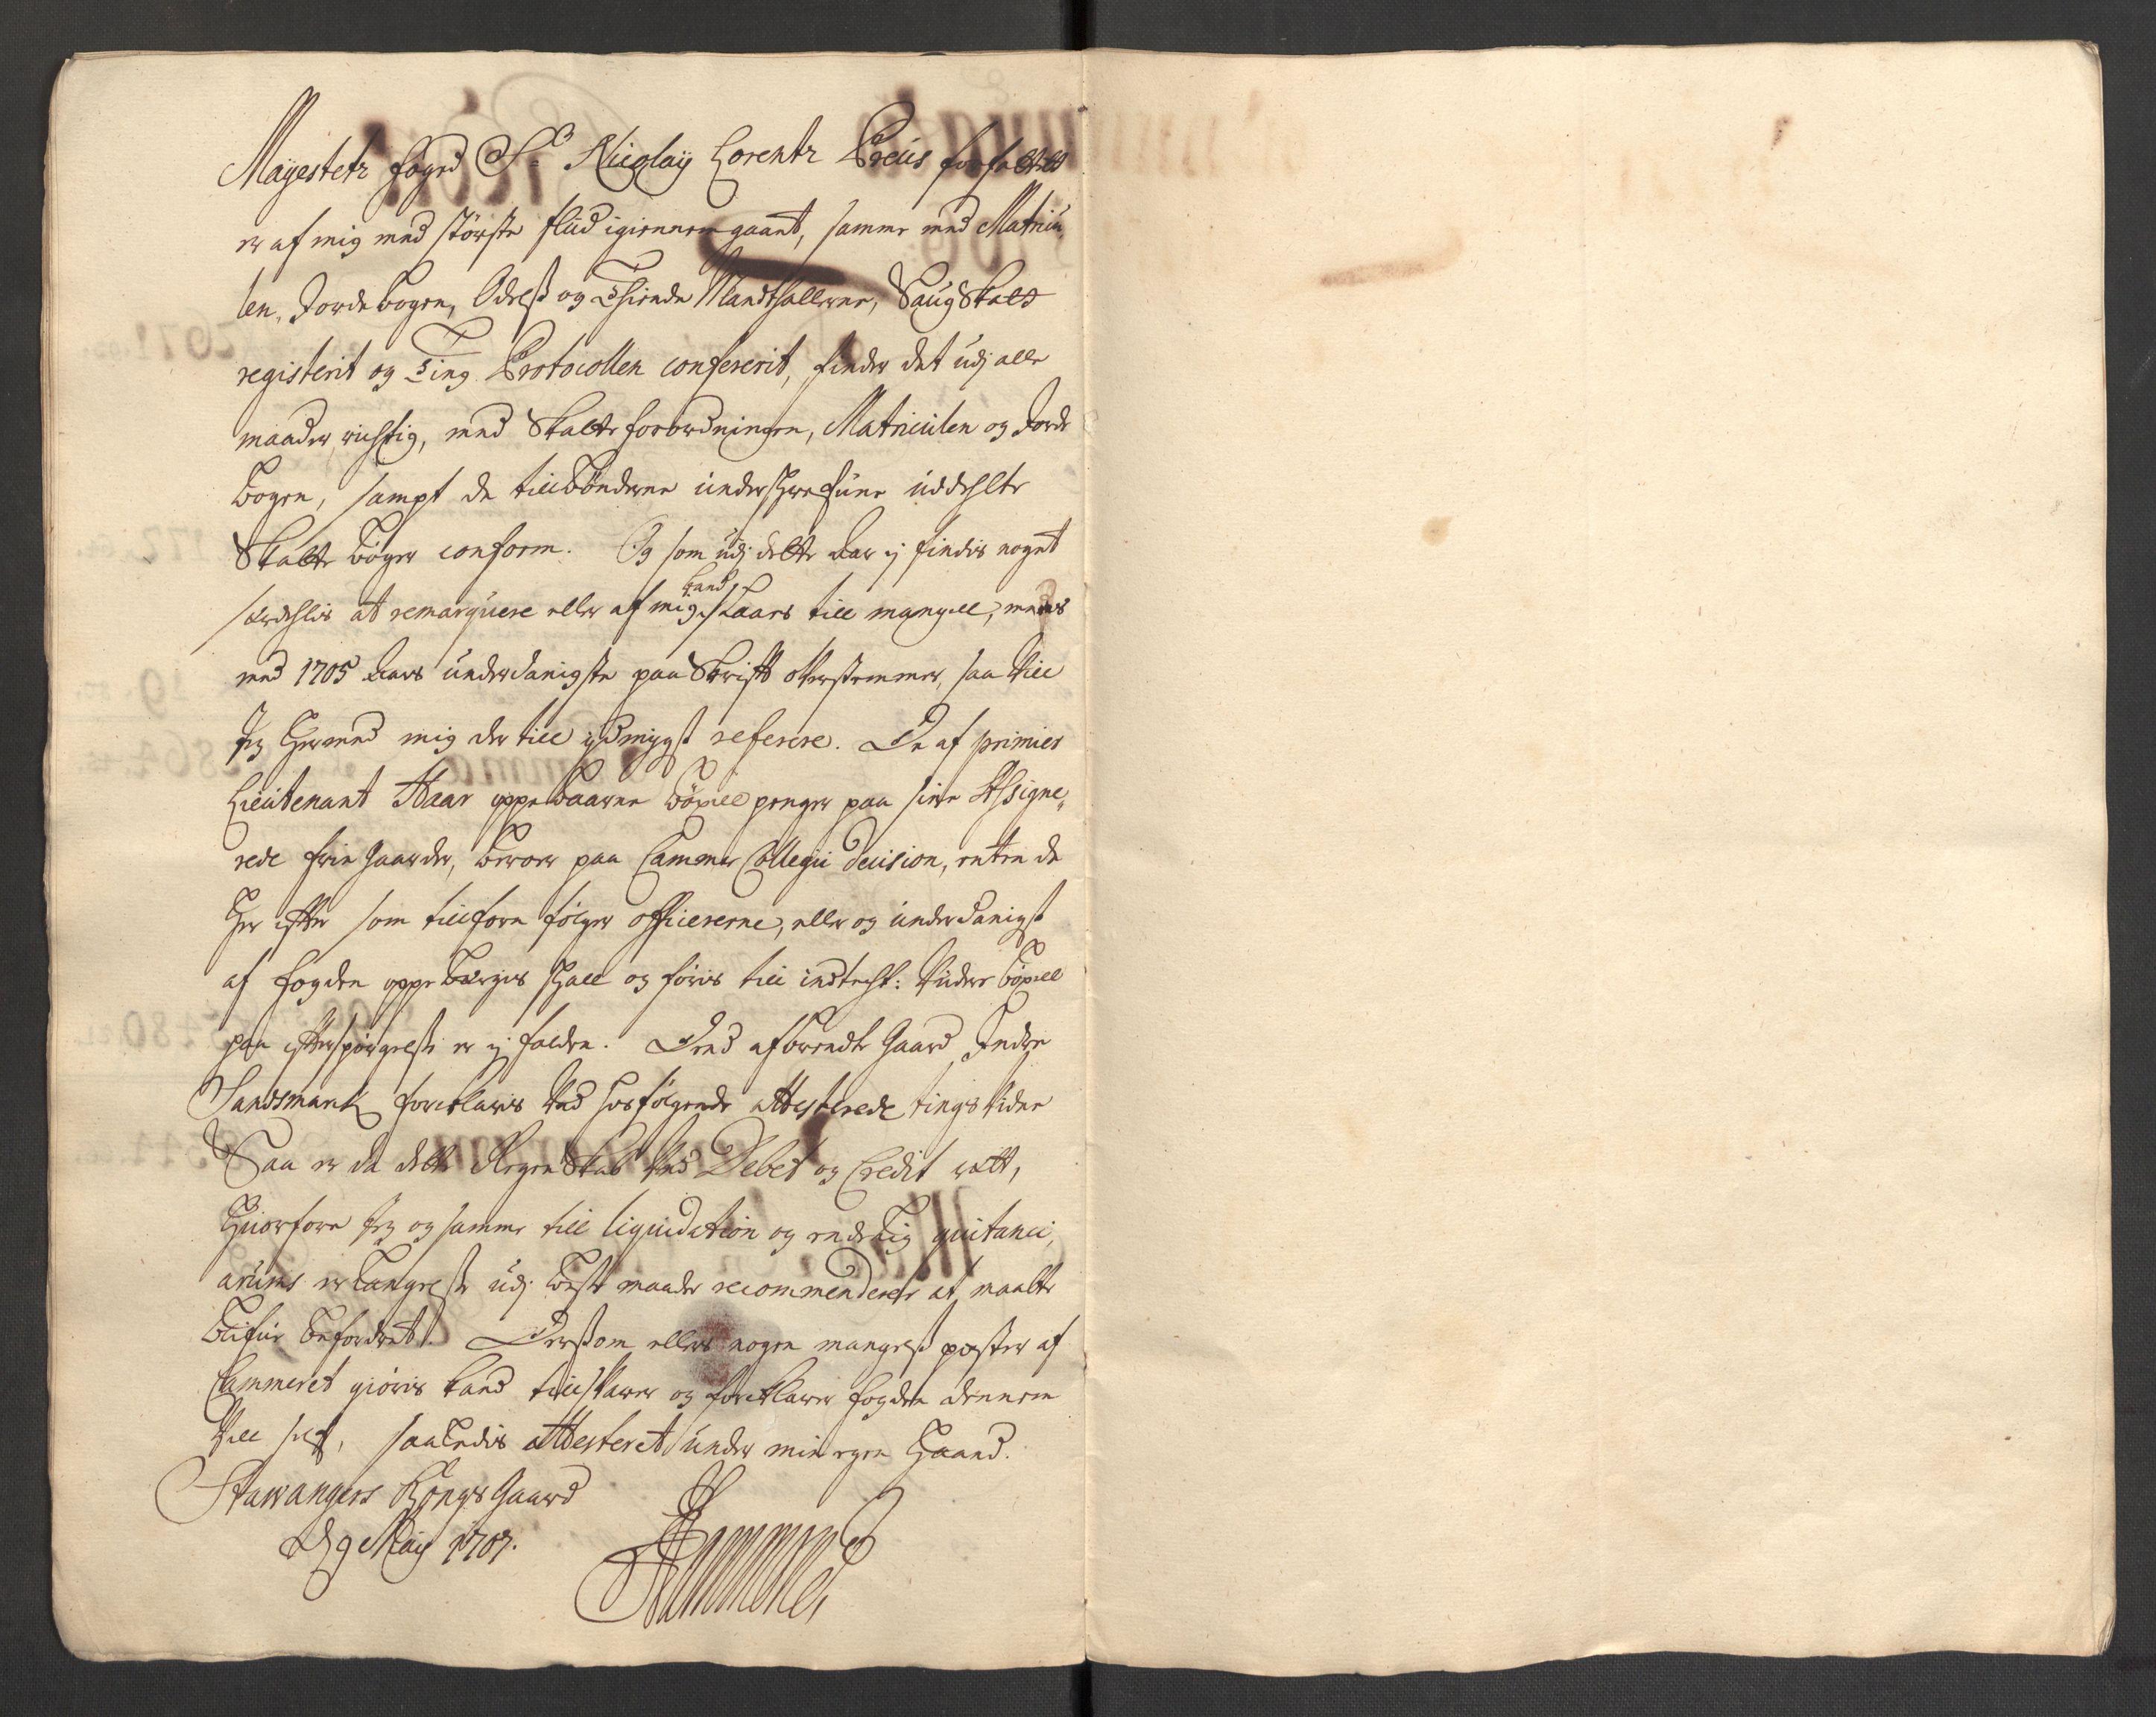 Mayestetz foged Sr Nicolaij Lorentz Preus forfattet
er af mig med störste fliid igiennemgaaet, samme med Matricu¬
len, Jordebogen, Odelß og Thiende Mandtallerne, Saug Skatt
registerit og Ting Protocollen confererit, finder det udj alle
maader richtig, med Skatte forordningen, Matriculen og Jorde
bogen, sampt de till bönderne underschrefüne uddeelte
Skatte böger conform. Og som udj dette Aar ej findis noget
serdelis at remarquere eller af mig kand, till mangell, mens
med 1705 Aars underdanigste paa Skrifft offverstemmer, saa vill
Jeg hermed mig der till ydmygst referere. De af primier
Lieutenant Haar oppebaarne böxell penger paa sine Assigne¬
rede frie gaarder, beroer paa Cammer Collegii decision, enten de
her effter som tillforn følger officererne, eller og underdanigst
af fogden oppebærges schall og føris till indtecht: Videre böxell
paa effterspörgelse er ej falden. Dend afbrendte gaard Indre
Sandsmark forklaris ved hosfølgende attesterede tingsvidne
Saa er da dette Regenskab ved Debet og Credit rett,
Huorfore Jeg og samme till liquidation og endelig quitanci¬
arums erlangelse udj beste maade recommenderer at maatte
blifue befordret. Dersom ellers nogen mangelß poster af
Cammeret giöris kand tillsvarer og forklarer fogden dennem
vell self, saaledis attesteret under min egen Haand.
Stawangers Kongs Gaard
D 9 Maij 1707.